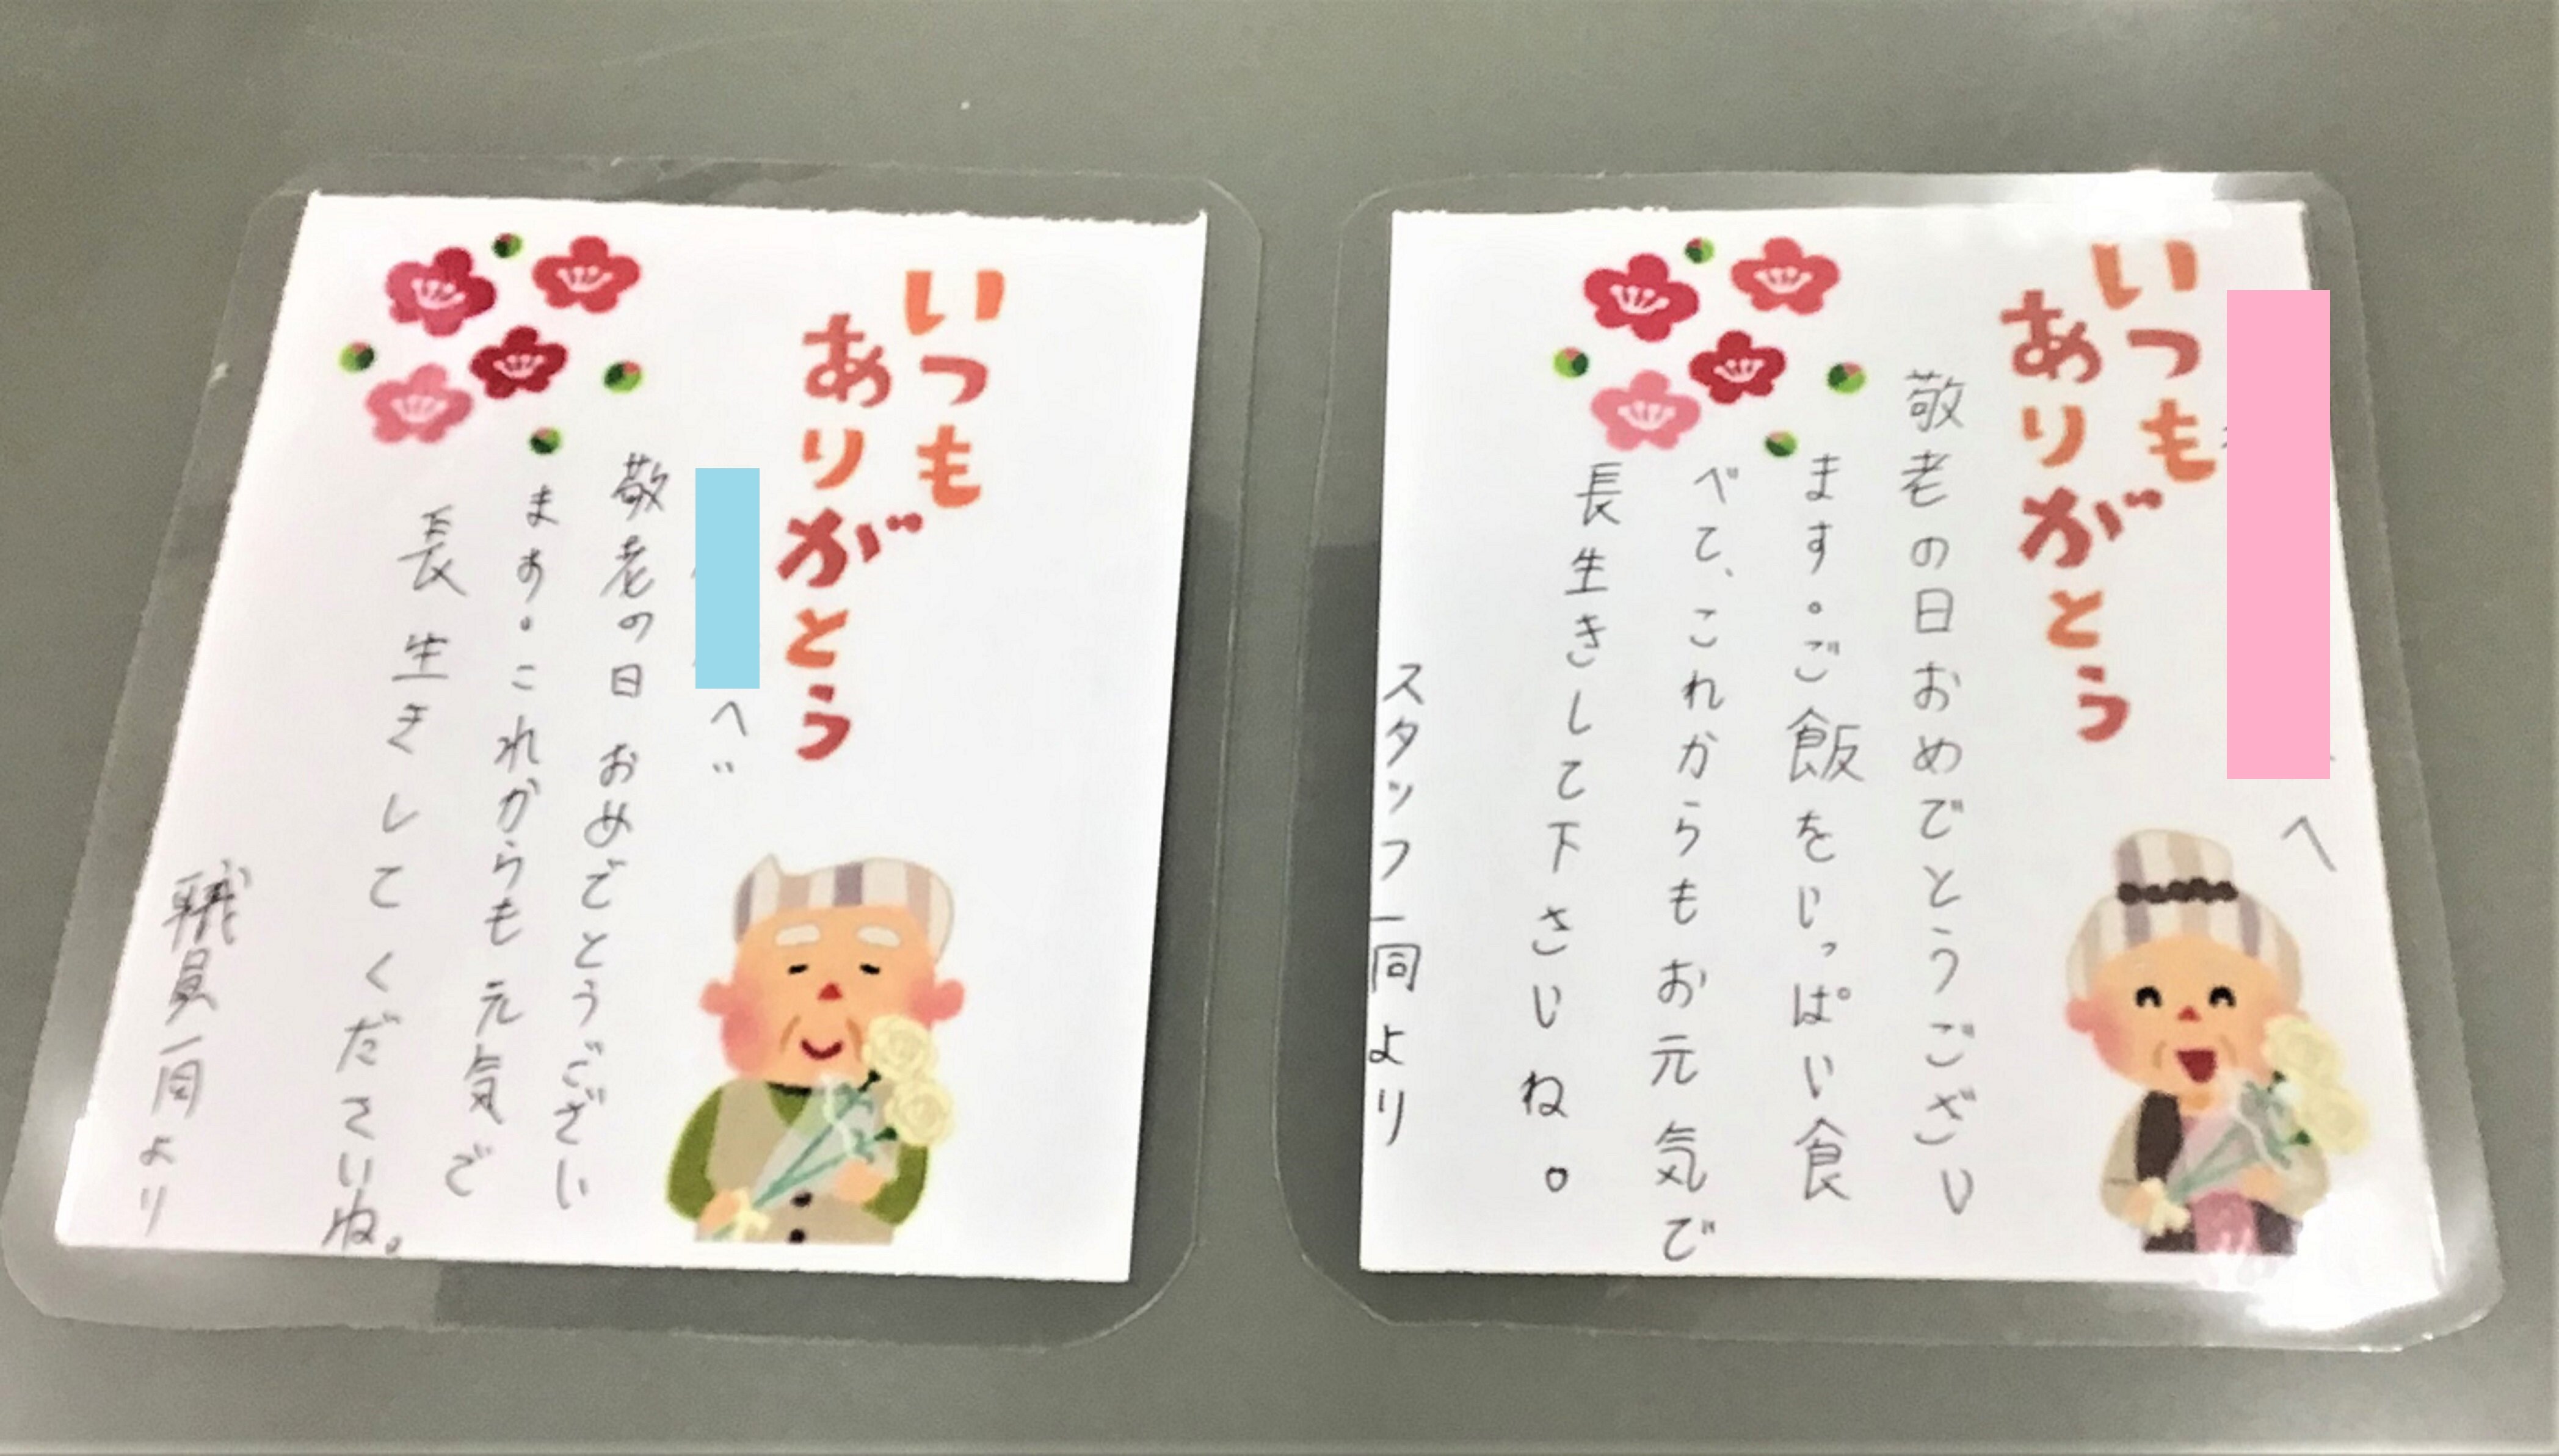 いつも
ありがとう
へ
敬老の日おめでとうござい
ます。これからも元気で
長生きしてくださいね。
職員一同より
へ
いつも
ありがとう
敬老の日おめでとうござい
ます。ご飯をいっぱい食
べて、これからもお元気で
長生きして下さいね。
スタッフ一同より